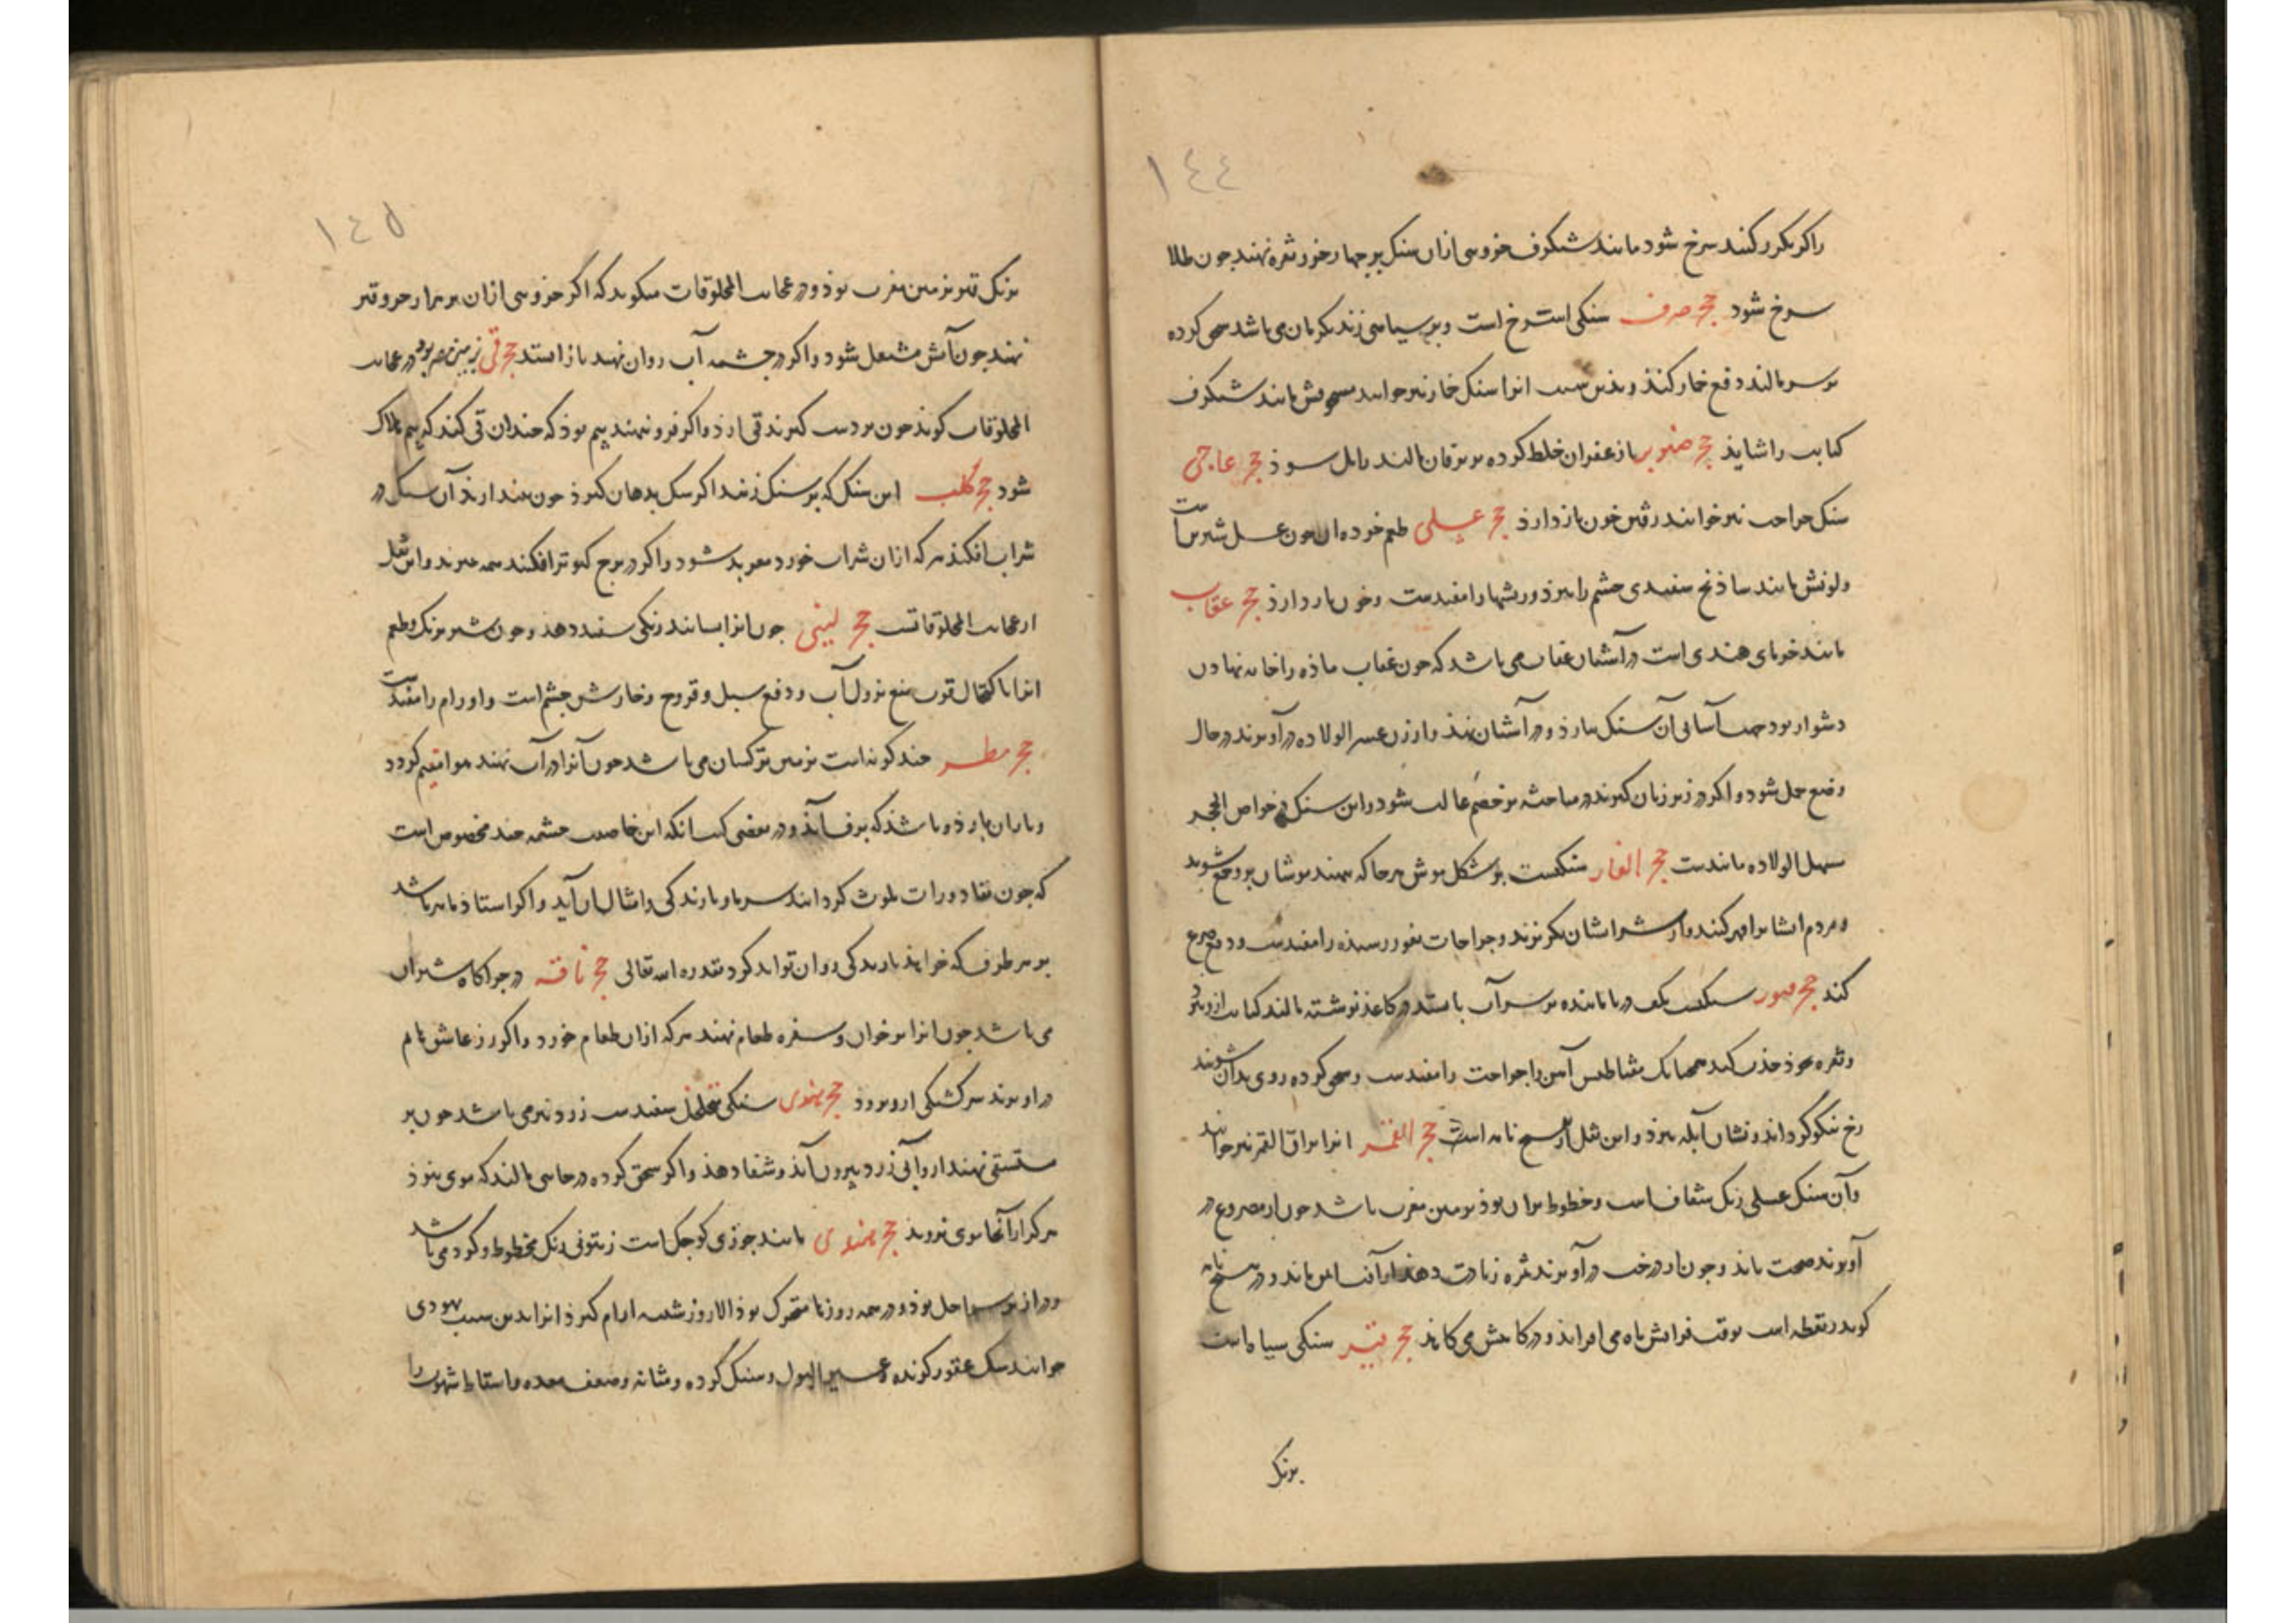 ١٤٤
را کر مکرر کنند سرخ شود مانند شنکرف جزوی ازان سنک بر چهار جزو نقره نهند جون طلا
سرخ شود حجر صرف سنکی است سرخ است وبر سیاهی زند بکرمان می باشد سحق کرده
بر سر مالند دفع خمار کند و بدین سبب انرا سنک خمار نیز خوانند سحوقش مانند شنکرف
کتابت را شاید حجر صنوبر با زعفران خلط کرده بر یرقان مالند زایل سوذ حجر عاجی
سنک جراحت نیز خوانند رفتن خون بازدارذ حجر عسلی طعم خوده ان جون عسل شیرینست
ولونش مانند ساذنج سفیدی جشم را ببرذ وریشها را مفیدست وخون باز دارذ حجر عقاب
مانند خرمای هندی است در آشیان عقاب می باشد که جون عقاب ماذه را خایه نهادن
دشوار بود جهت آسانی آن سنک بیارذ ودر آشیان نهذ وار زن عسر الولاده در آویزند در حال
وضع حمل شود واکر در زیر زبان کیرند در مباحثه بر خصم غالب شود واین سنک در خواص الحجر
سهل الولاده مانندست حجر الفار سنکیست بر شکل موش هر جا که نهند موشان برو جمع شوند
ومردم ایشانرا قهر کنند واز شر ایشان بکریزند وجراحات بغور رسیده را مفیدست ودفع صرع
کند حجر قیبور سنکیست بکف دریا مانند بر سر آب بایستد در کاغذ نوشته مالند کتابت ازو ببرد
ونقره بخوذ جذب کند همجنانک مغناطیس آهن را جراحت را مفیدست وسحق کرده روی بدان شویند
رخ نیکو کرداند ونشان آبله ببرذ واین نقل از نسخ نامه است حجر القمر انرا بزاق القمر نیز خوانند
وآن سنک عسلی رنک شفافست وخطوط بران بوذ بزمین مغرب باشد جون از مصروع در
آویزند صحت یابذ وجون از درخت در آویزند ثمره زیادت دهذ واز آفت ایمن ماند ودر نسخ نامه
کوید برو نقطه است بوقت فزایش ماه می افزایذ ودر کاهش می کاهذ حجر قیر سنکی سیاهست
برنک
١٤٥
برنک قیر بزمین مغرب بوذ ودر عجایب المخلوقات میکوید که اکر جزوی ازان بر هزار جزو قیر
نهند جون آتش مشتعل شود واکر در جشمه آب روان نهند باز ایستد حجر قی بزمین مصر بود در عجایب
المخلوقات کوید جون بر دست کیرند قی ارذ واکر فرو ننهند بیم بوذ که جندان قی کند که بیم هلاک
شود حجر کلب این سنک که بر سنک زنند اکر سک بدهان کیرذ جون بیندازند آن سنک در
شراب افکنذ هر که ازان شراب خورد معربد شود واکر در برج کبوتر افکنند همه بمیرند واین نقل
از عجایب المخلوقاتست حجر لبنی جون انرا بسایند رنکی سفید دهذ وجون شیر برنک وطعم
انرا با کتحال قوت منع نزول آب ودفع سبل وقروح وخارش جشم است واورام را مفیدست
حجر مطر جند کونه است بزمین ترکستان می باشد جون آنرا در آب نهند هوا متغیم کردد
وباران بارذ وباشذ که برف آیذ ودر بعضی کتب انکه این خاصیت جشمه جند مخصوص است
که جون بقاذورات ملوث کردانند سرما وبارندکی وامثال ان آید واکر استاذ ماهر باشد
بهر طرف که خواهذ بارندکی روان تواند کرد بقدره الله تعالی حجر ناقه در جراکاه شتران
می باشد جون انرا بر خوان وسفره طعام نهند هر که ازان طعام خورد واکر از عاشق نام
در اویزند سرکشتکی ازو برود حجر هندی سنکی متخلخل سفیدست زرد نیز می باشد جون بر
مستسقی نهند ازو آبی زرد بیرون آیذ وشفا دهذ واکر سحق کرده در جایی مالند که موی بنوذ
هرکز از آنجا موی نروید حجر هندی مانند جوزی کوجک است زیتونی رنک مخطوط وکرد می باشد
ودراز بر سواحل بوذ ودر همه روزها متحرک بوذ الا روز شنبه ارام کیرذ انرا بدین سبب یهودی
خوانند سک عقور کزنده وعسر البول وسنک کرده ومثانه وضعف معده واسقاط شهوت را